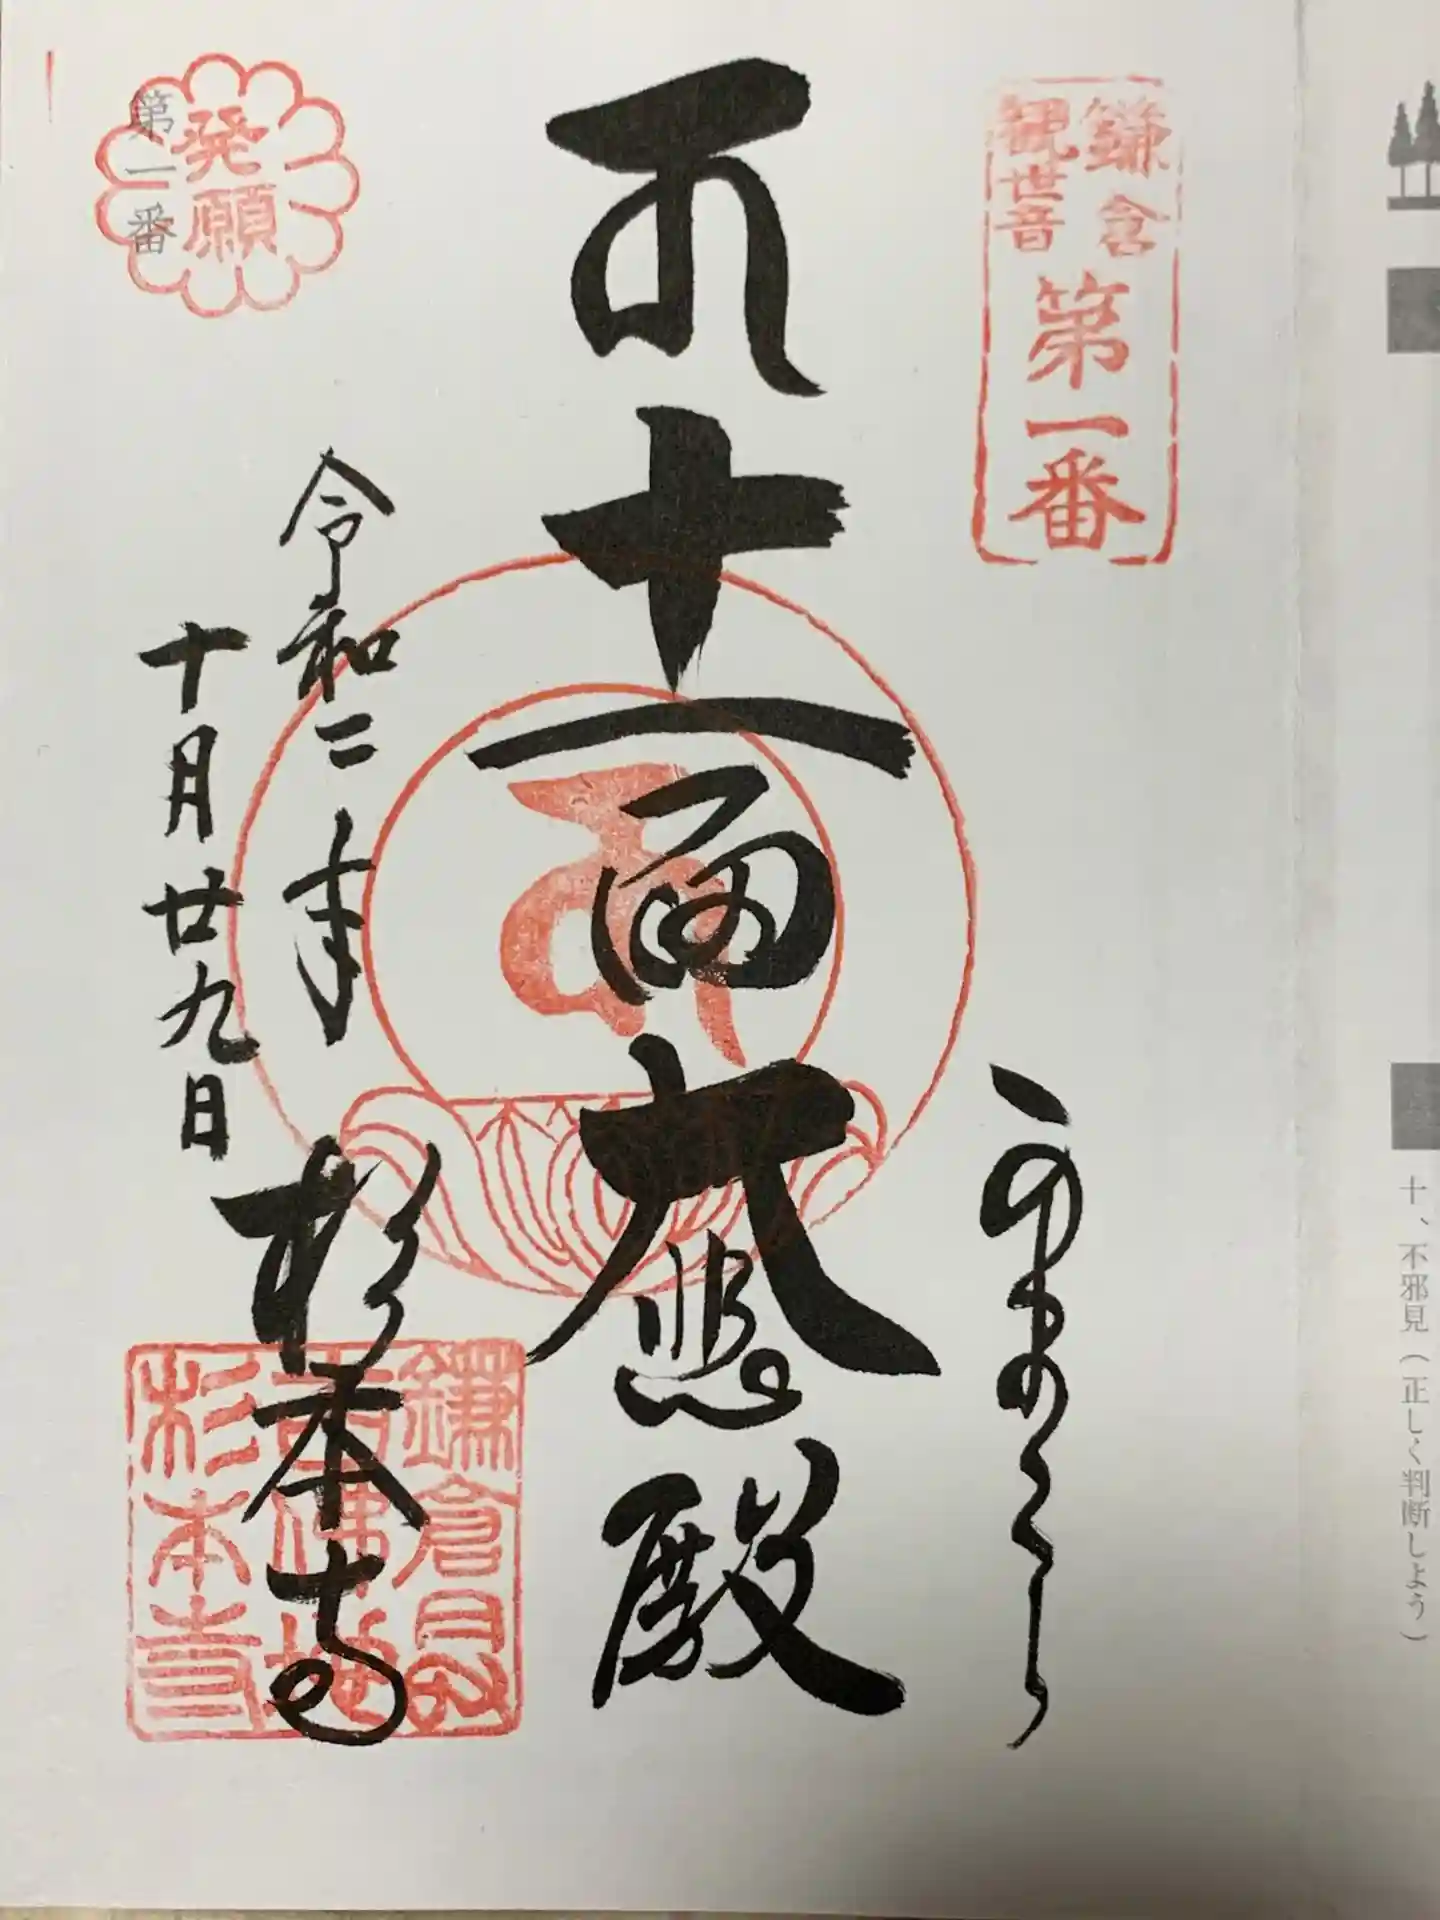 十、不邪見（正しく判断しよう）
鎌倉
観世音
第一番
十一面大悲殿
発願
第一番
令和二年
十月廿九日
杉本寺
鎌倉
杉本寺